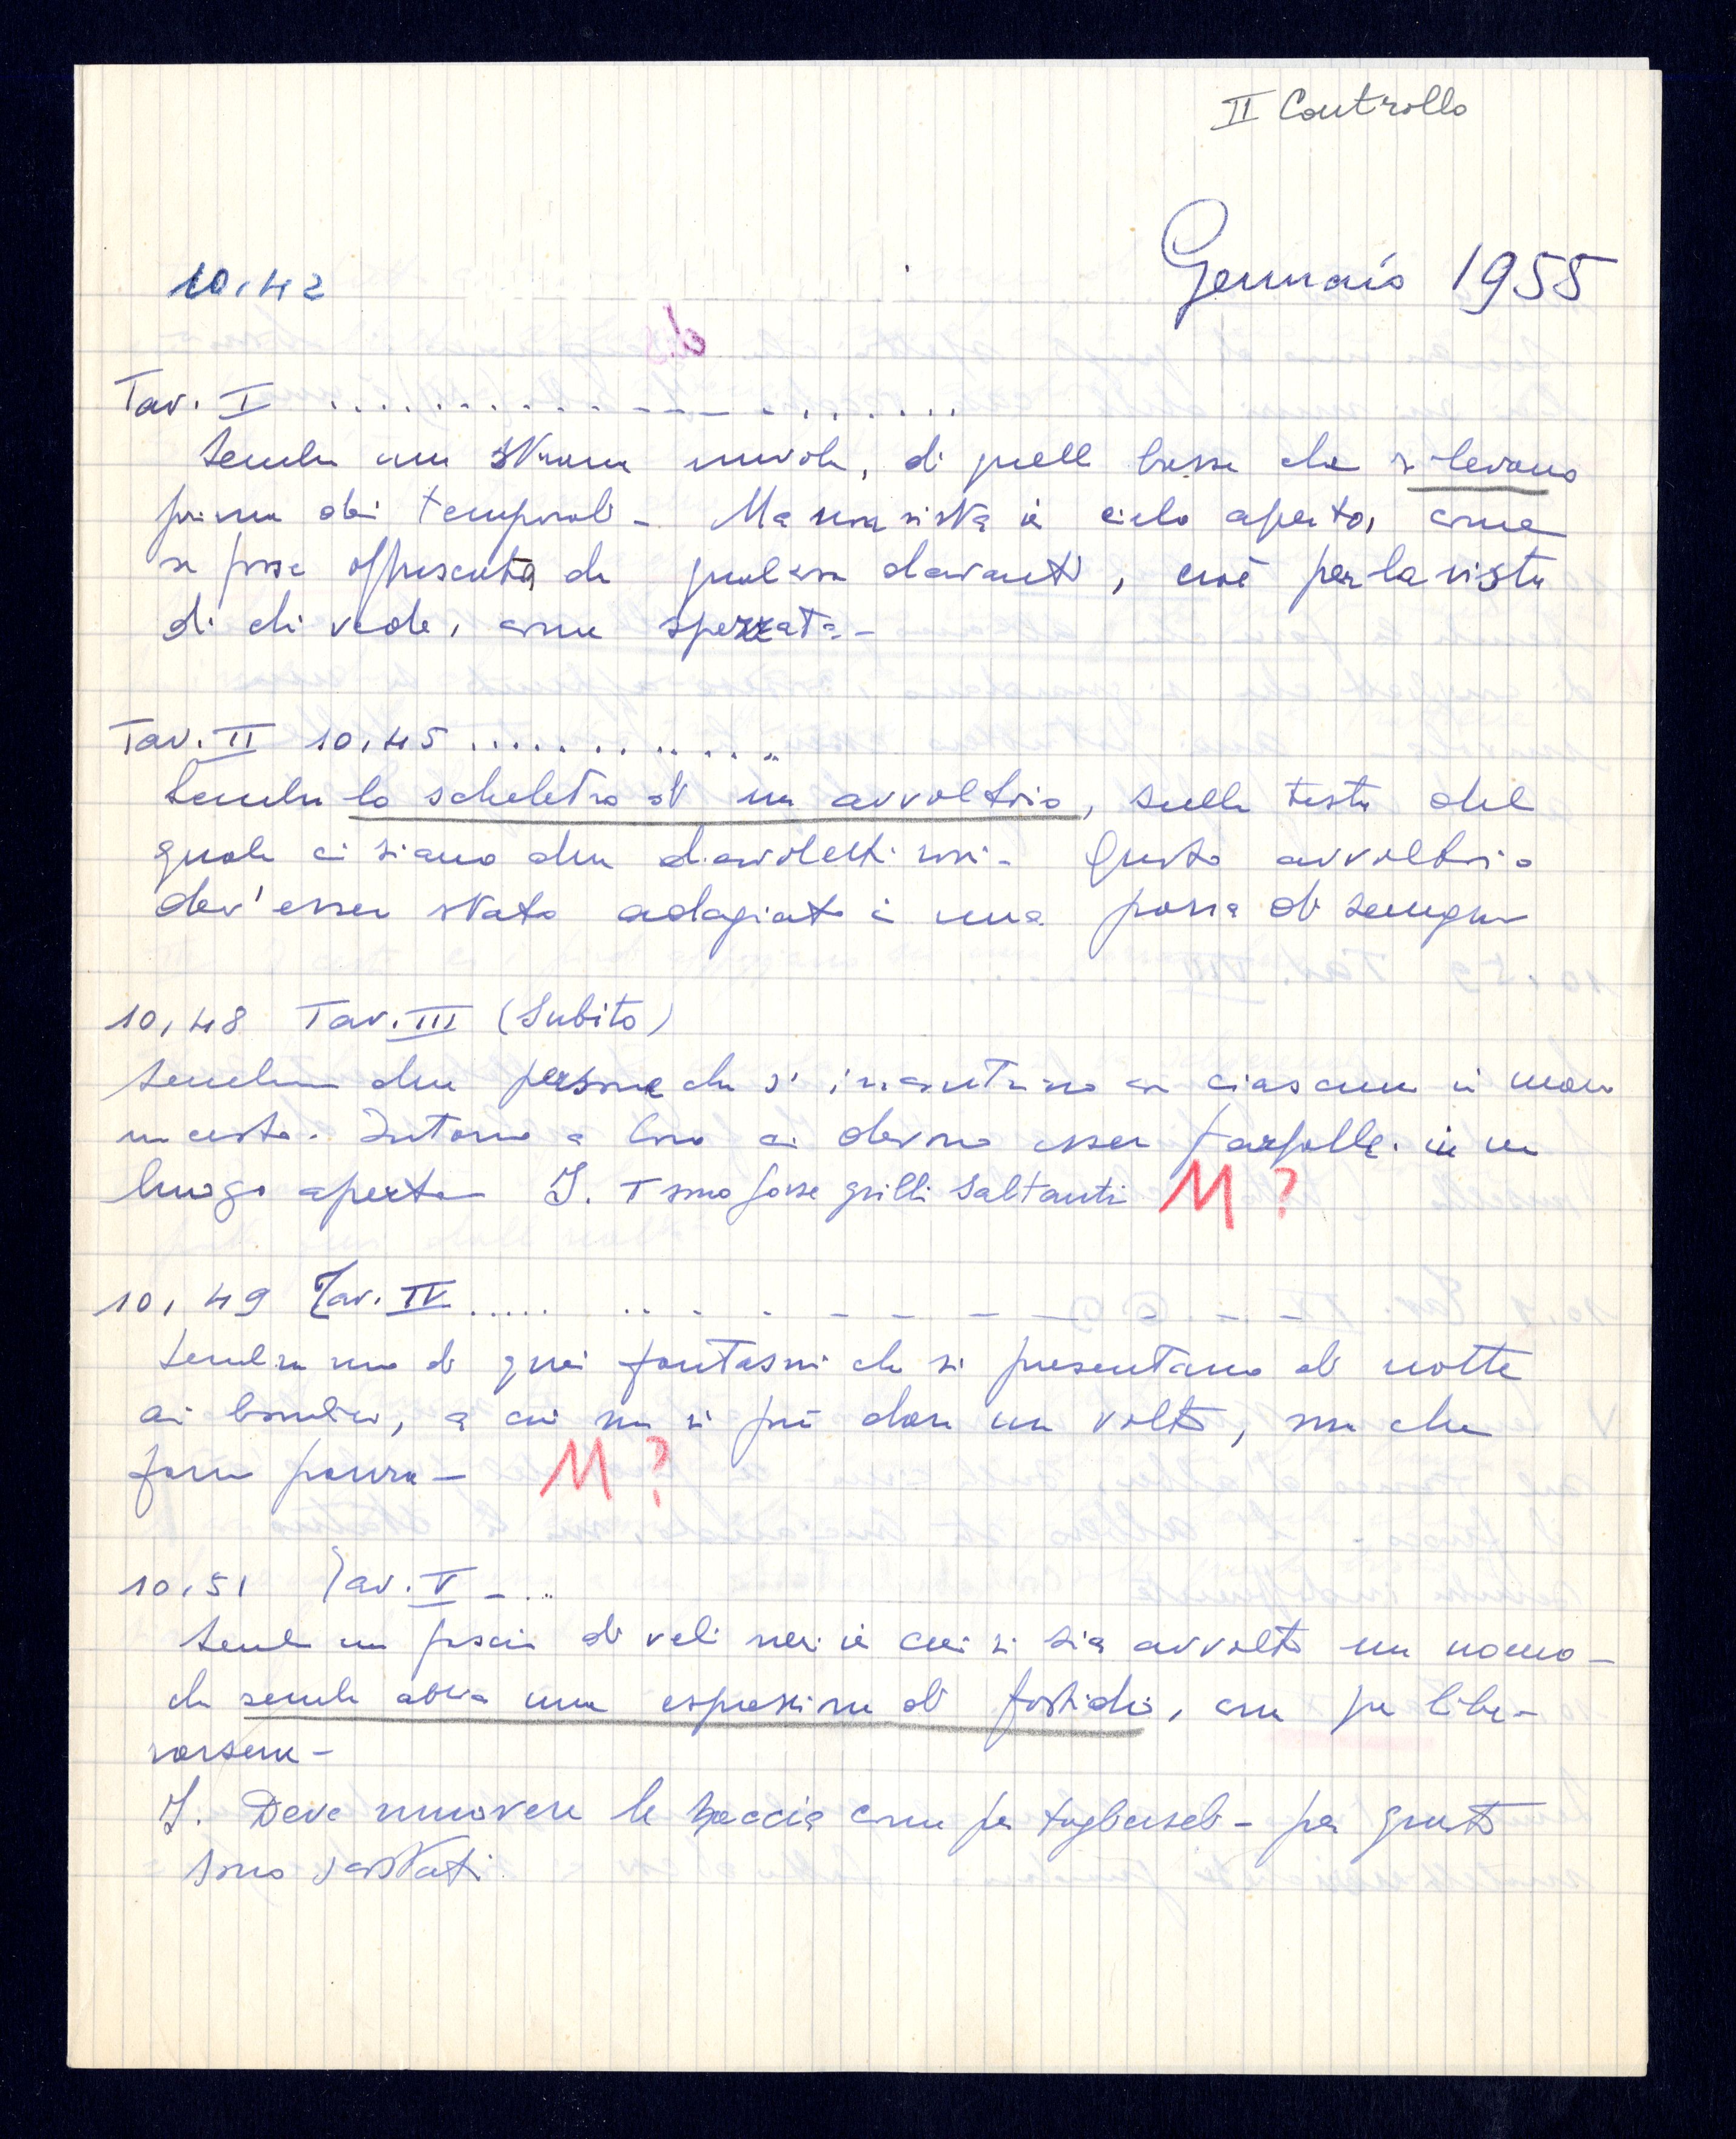 II Controllo
Gennaio 1955
10,42
Tav. I ........................
Sembra una strana nuvola, di quelle basse che si levano
prima dei temporali - Ma non si sta in cielo aperto, come
se fosse offuscata da qualcosa davanti, cioè per la vista
di chi vede, come spezzata -
Tav. II 10,45 ..............
Sembra lo scheletro di un avvoltoio, sulla testa del
quale ci siano due diavoletti rossi - Questo avvoltoio
dev'esser stato adagiato in una pozza di sangue
10,48 Tav. III (Subito)
Sembrano due persone che si incontrano con ciascuna in mano
un cesto. Intorno a loro ci devono esser farfalle. in un
luogo aperto I. T sono forse grilli saltanti M ?
10,49 Tav. IV ..... .. . . - - - - - -
Sembra uno di quei fantasmi che si presentano di notte
ai bambini, a cui non si può dare un volto, ma che
fanno paura - M ?
10,51 Tav. V - ...
Sembra un fascio di veli neri in cui si sia avvolto un uomo -
che sembra abbia una espressione di fastidio, come per libe-
rarsene -
I. Deve muovere le braccia come per toglierseli - per questo
sono